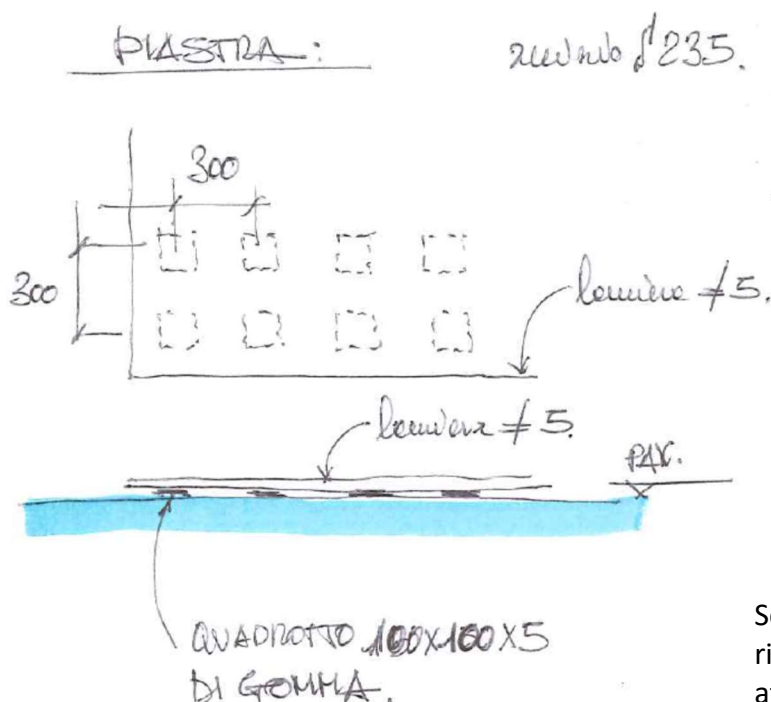 PIASTRA:
S235.
300
300
lamiera ≠ 5.
lamiera ≠ 5.
PAV.
QUADROTTO 100X100X5
DI GOMMA.